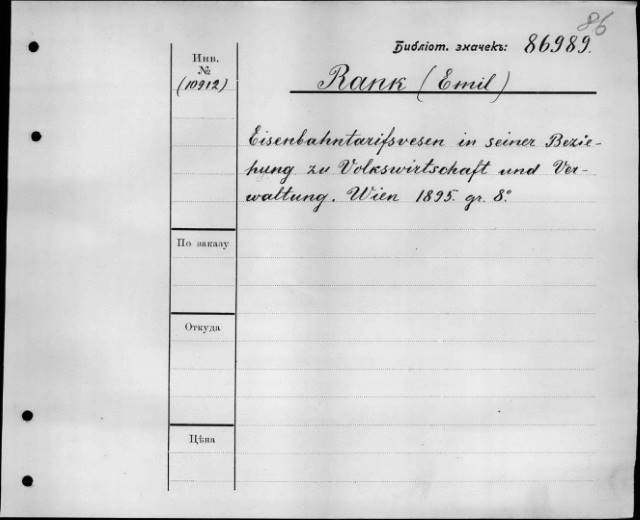 86
Библіот. значекъ: 86989.
Инв.
№
(10912)
Rank (Emil)
Eisenbahntarifsvesen in seiner Bezie-
hung zu Volkswirtschaft und Ver-
waltung. Wien 1895. gr. 8°
По заказу
Откуда
Цѣна